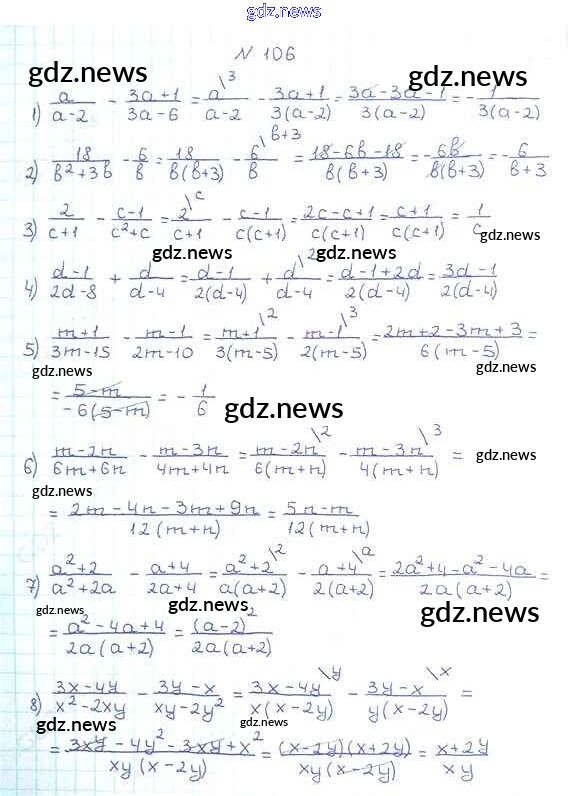 gdz.news
N 106
gdz.news gdz.news
1) a/(a-2) - (3a+1)/(3a-6) = a\3/(a-2) - (3a+1)/(3(a-2)) = (3a-3a-1)/(3(a-2)) = - 1/(3(a-2))
2) 18/(в²+3в) - 6/в = 18/(в(в+3)) - 6\в+3/в = (18-6в-18)/(в(в+3)) = -6в/(в(в+3)) = - 6/(в+3)
3) 2/(c+1) - (c-1)/(c²+c) = 2\c/(c+1) - (c-1)/(c(c+1)) = (2c-c+1)/(c(c+1)) = (c+1)/(c(c+1)) = 1/c
gdz.news
gdz.news gdz.news
4) (d-1)/(2d-8) + d/(d-4) = (d-1)/(2(d-4)) + d\2/(d-4) = (d-1+2d)/(2(d-4)) = (3d-1)/(2(d-4))
5) (m+1)/(3m-15) - (m-1)/(2m-10) = (m+1)\2/(3(m-5)) - (m-1)\3/(2(m-5)) = (2m+2-3m+3)/(6(m-5)) =
gdz.news gdz.news
= (5-m)/(-6(5-m)) = - 1/6
gdz.news
6) (m-2n)/(6m+6n) - (m-3n)/(4m+4n) = (m-2n)\2/(6(m+n)) - (m-3n)\3/(4(m+n)) =
gdz.news
gdz.news
= (2m-4n-3m+9n)/(12(m+n)) = (5n-m)/(12(m+n))
7) (a²+2)/(a²+2a) - (a+4)/(2a+4) = (a²+2)\2/(a(a+2)) - (a+4)\a/(2(a+2)) = (2a²+4-a²-4a)/(2a(a+2)) =
gdz.news gdz.news gdz.news
= (a²-4a+4)/(2a(a+2)) = (a-2)²/(2a(a+2))
8) (3x-4y)/(x²-2xy) - (3y-x)/(xy-2y²) = (3x-4y)\y/(x(x-2y)) - (3y-x)\x/(y(x-2y)) =
gdz.news gdz.news gdz.news
= (3xy-4y²-3xy+x²)/(xy(x-2y)) = (x-2y)(x+2y)/(xy(x-2y)) = (x+2y)/(xy)
gdz.news